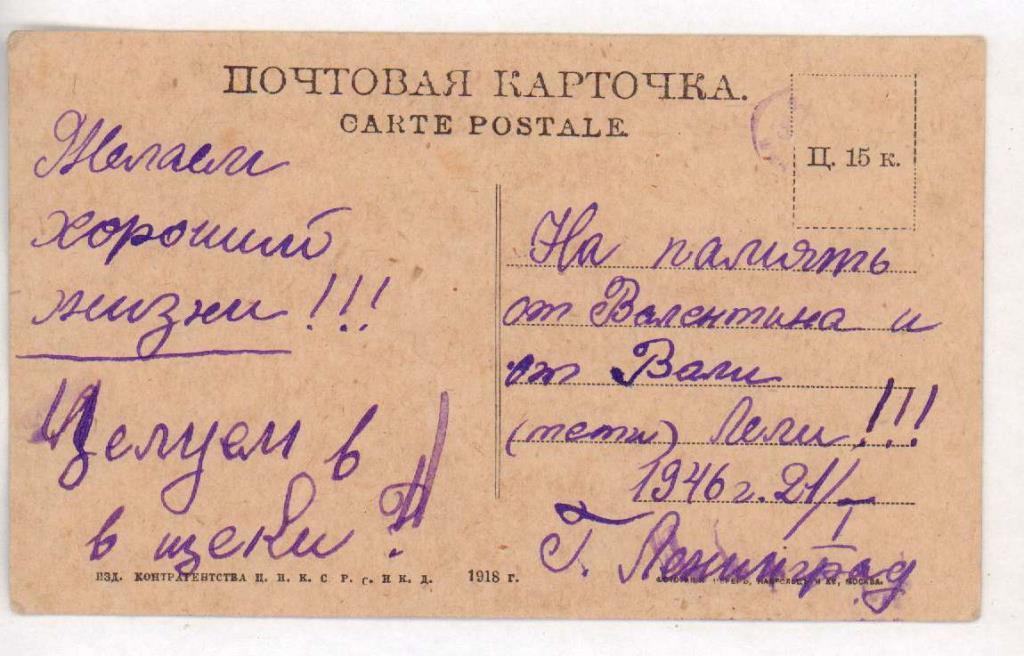 ПОЧТОВАЯ КАРТОЧКА.
CARTE POSTALE.
Ц. 15 к.
Желаем
хороший
жизни!!!
Целуем в
в щеки!!!
На память
от Валентина и
от Вали
(тети) Лели!!!
1946 г. 21/I
Г. Ленинград
ИЗД. КОНТРАГЕНТСТВА Ц. И. К. С. Р. С. И К. Д. 1918 г.
МОСКВА.